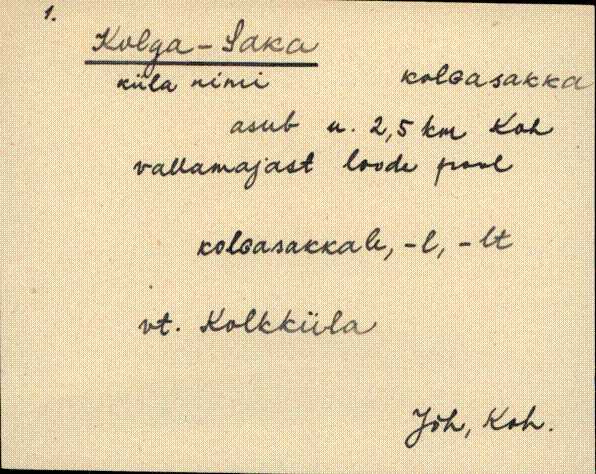 1.
Kolga-Saka
küla nimi kolGasakka
asub u. 2,5 km Koh
vallamajast loode pool
kolGasakkale, -l, -lt
vt. Kolkküla
Jõh, Koh.